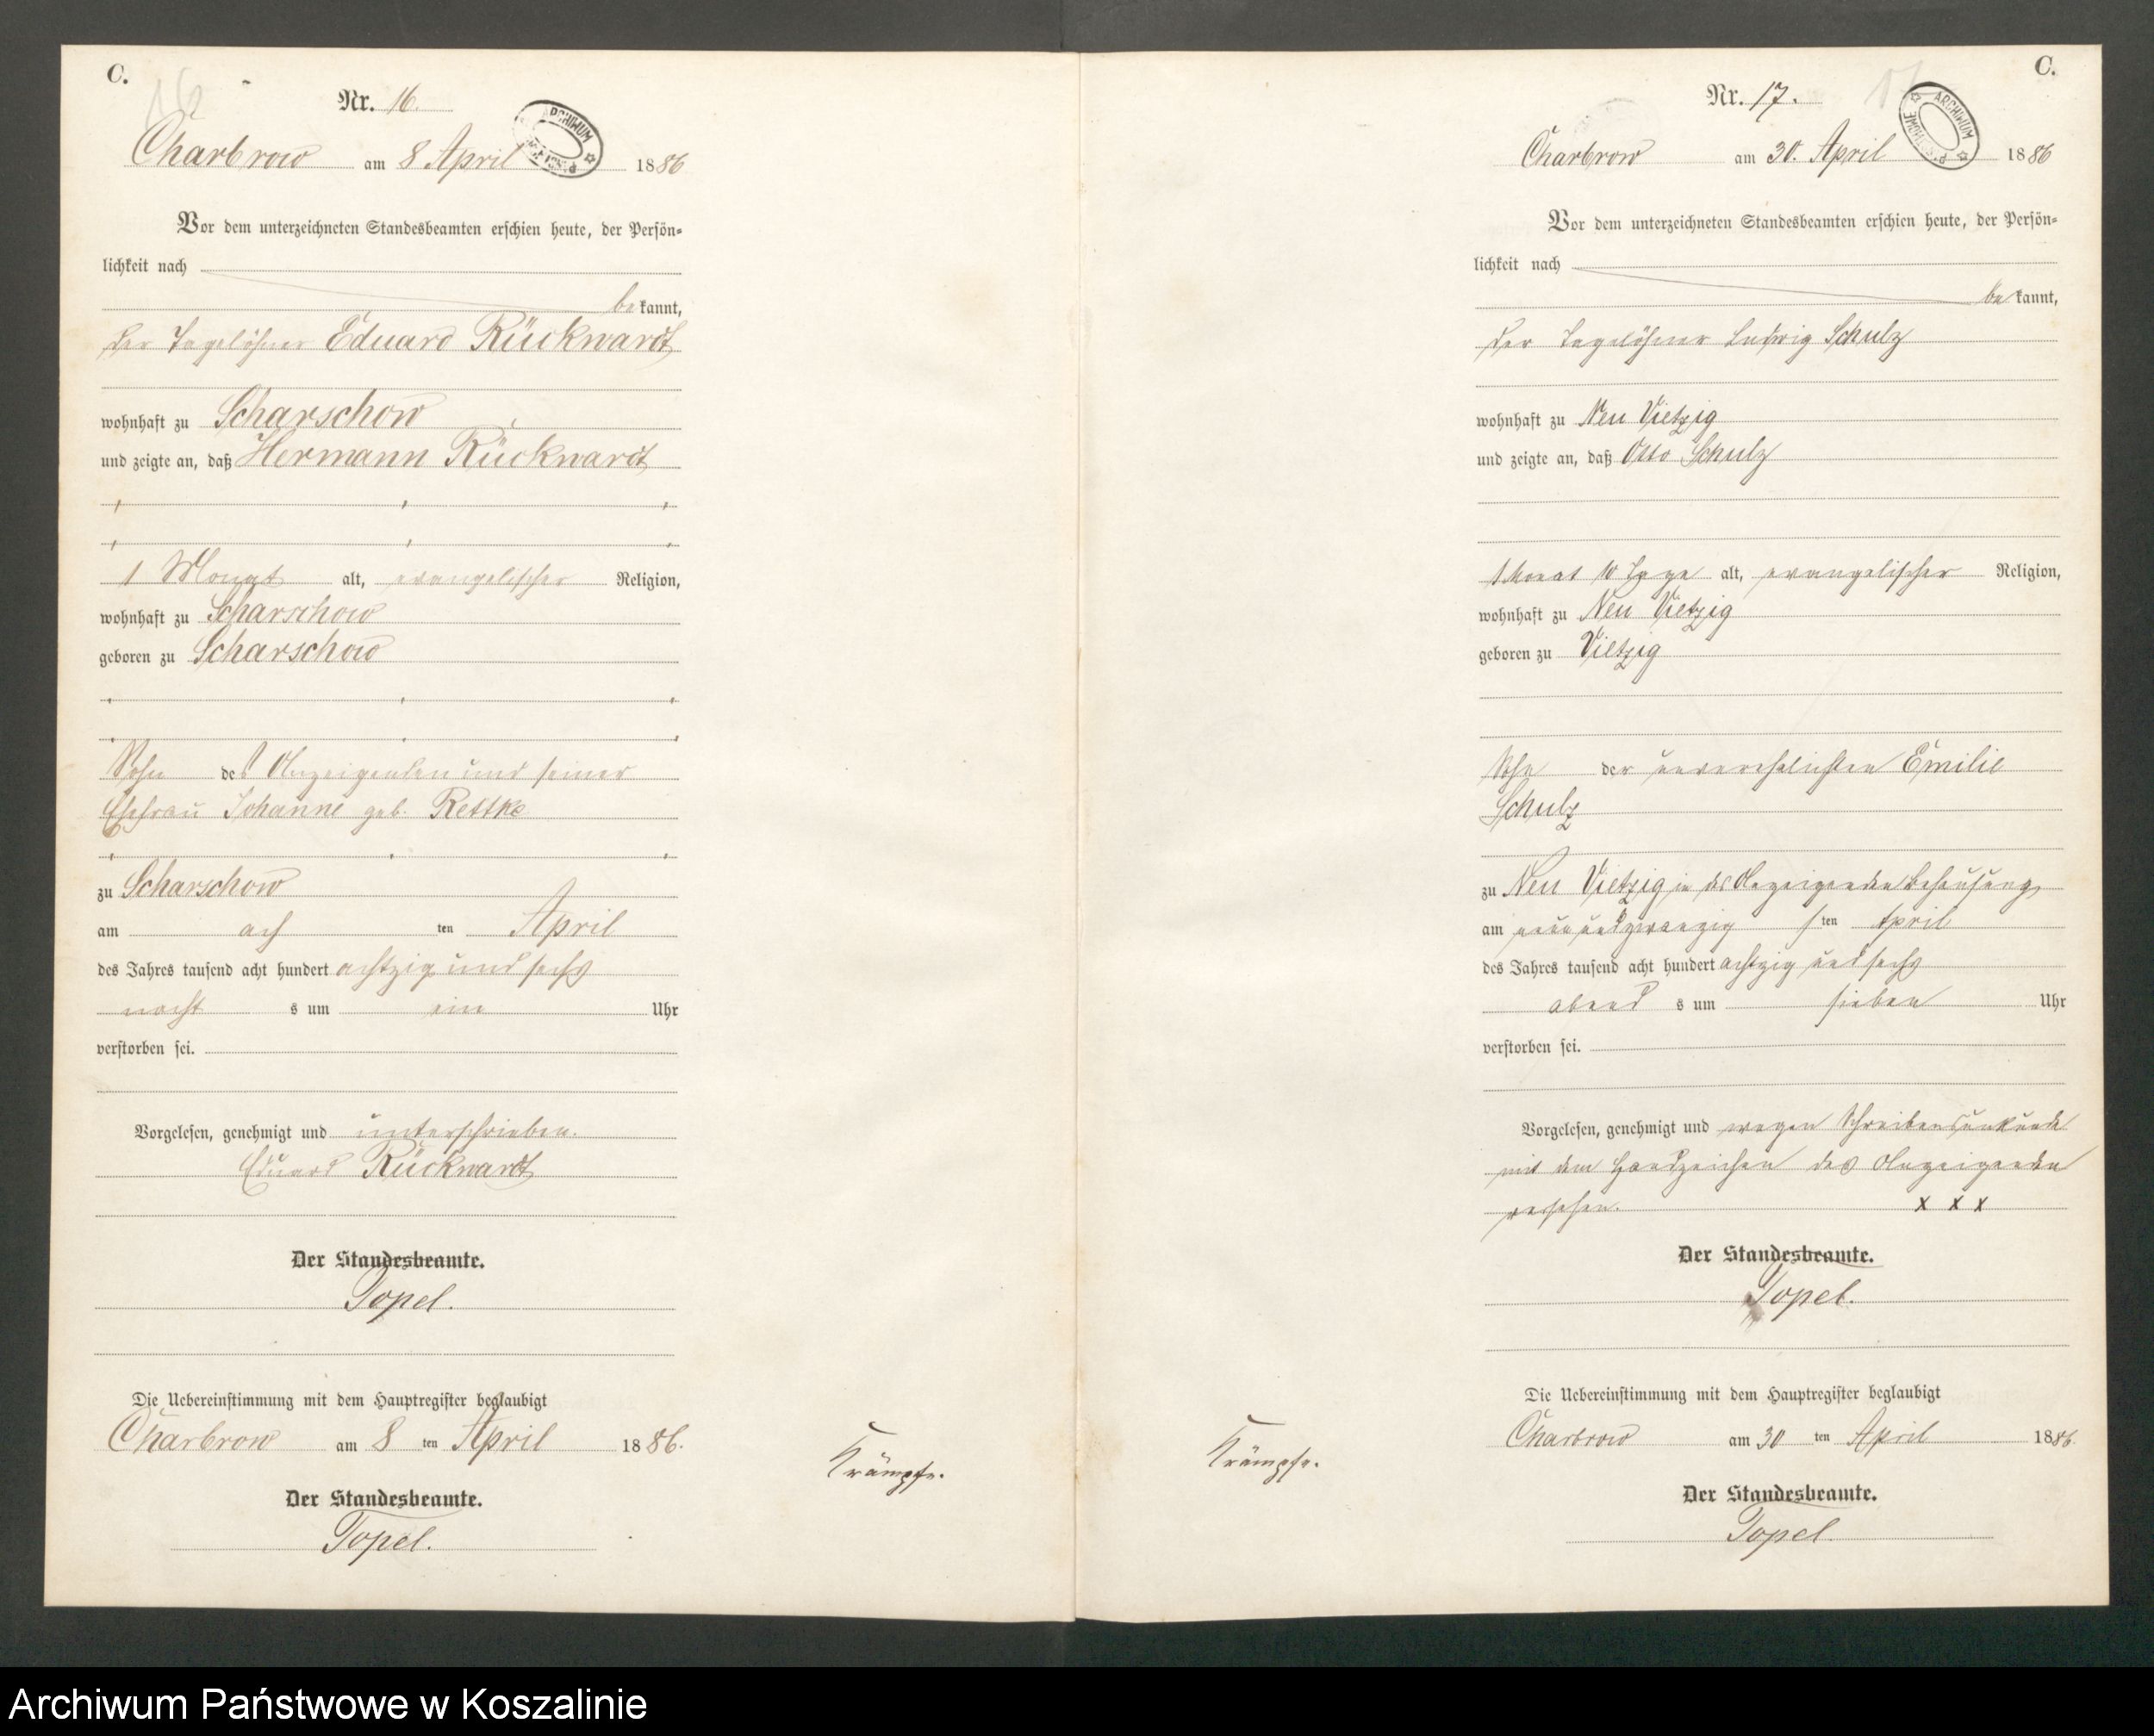 C.
Nr. 16.
Charbrow am 8 April 1886
ARCHIWUM
Vor dem unterzeichneten Standesbeamten erschien heute, der Persön-
lichkeit nach
bekannt,
der Tagelöhner Eduard Rückwardt
wohnhaft zu Scharschow
und zeigte an, daß Hermann Rückwardt
1 Monat alt, evangelischer Religion,
wohnhaft zu Scharschow
geboren zu Scharschow
Sohn des Anzeigenden und seiner
Ehefrau Johanne geb. Rettke
zu Scharschow
am ach ten April
des Jahres tausend acht hundert achtzig und sechs
nacht s um ein Uhr
verstorben sei.
Vorgelesen, genehmigt und unterschrieben.
Eduard Rückwardt
Der Standesbeamte.
Topel.
Die Uebereinstimmung mit dem Hauptregister beglaubigt
Charbrow am 8 ten April 1886.
Der Standesbeamte.
Topel.
Krämpfe.
C.
Nr. 17.
Charbrow am 30. April 1886
ARCHIWUM
Vor dem unterzeichneten Standesbeamten erschien heute, der Persön-
lichkeit nach
bekannt,
der Tagelöhner Ludwig Schulz
wohnhaft zu Neu Vietzig
und zeigte an, daß Otto Schulz
1 Monat 10 Tage alt, evangelischer Religion,
wohnhaft zu Neu Vietzig
geboren zu Vietzig
Sohn der unverehelichten Emilie
Schulz
zu Neu Vietzig in des Anzeigenden Behausung
am neun und zwanzig sten April
des Jahres tausend acht hundert achtzig und sechs
abend s um sieben Uhr
verstorben sei.
Vorgelesen, genehmigt und wegen Schreibensunkunde
mit dem Handzeichen des Anzeigenden
versehen. x x x
Der Standesbeamte.
Topel.
Die Uebereinstimmung mit dem Hauptregister beglaubigt
Charbrow am 30 ten April 1886.
Der Standesbeamte.
Topel.
Krämpfe.
Archiwum Państwowe w Koszalinie